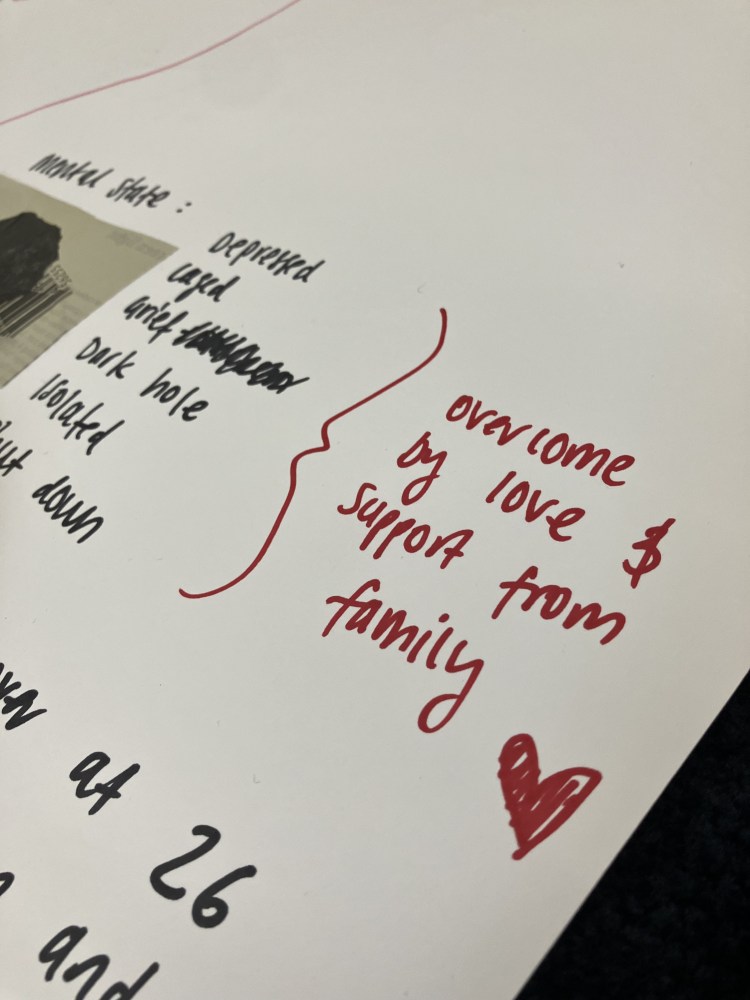 Mental state :
Depressed
caged
Grief
Dark hole
Isolated
down
overcome
by love $
support from
family
at 26
and